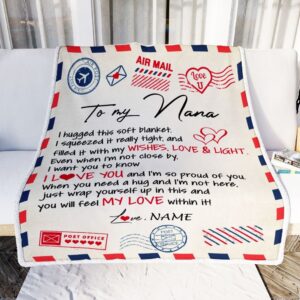 AIR MAIL
LOVE U
To my Nana
I hugged this soft blanket.
I squeezed it really tight, and
Filled it with my WISHES, LOVE & LIGHT.
Even when I'm not close by,
I want you to know
I LOVE YOU and I'm so proud of you.
When you need a hug and I'm not here,
just wrap yourself up in this and
you will feel MY LOVE within it!
Love, NAME
POST OFFICE